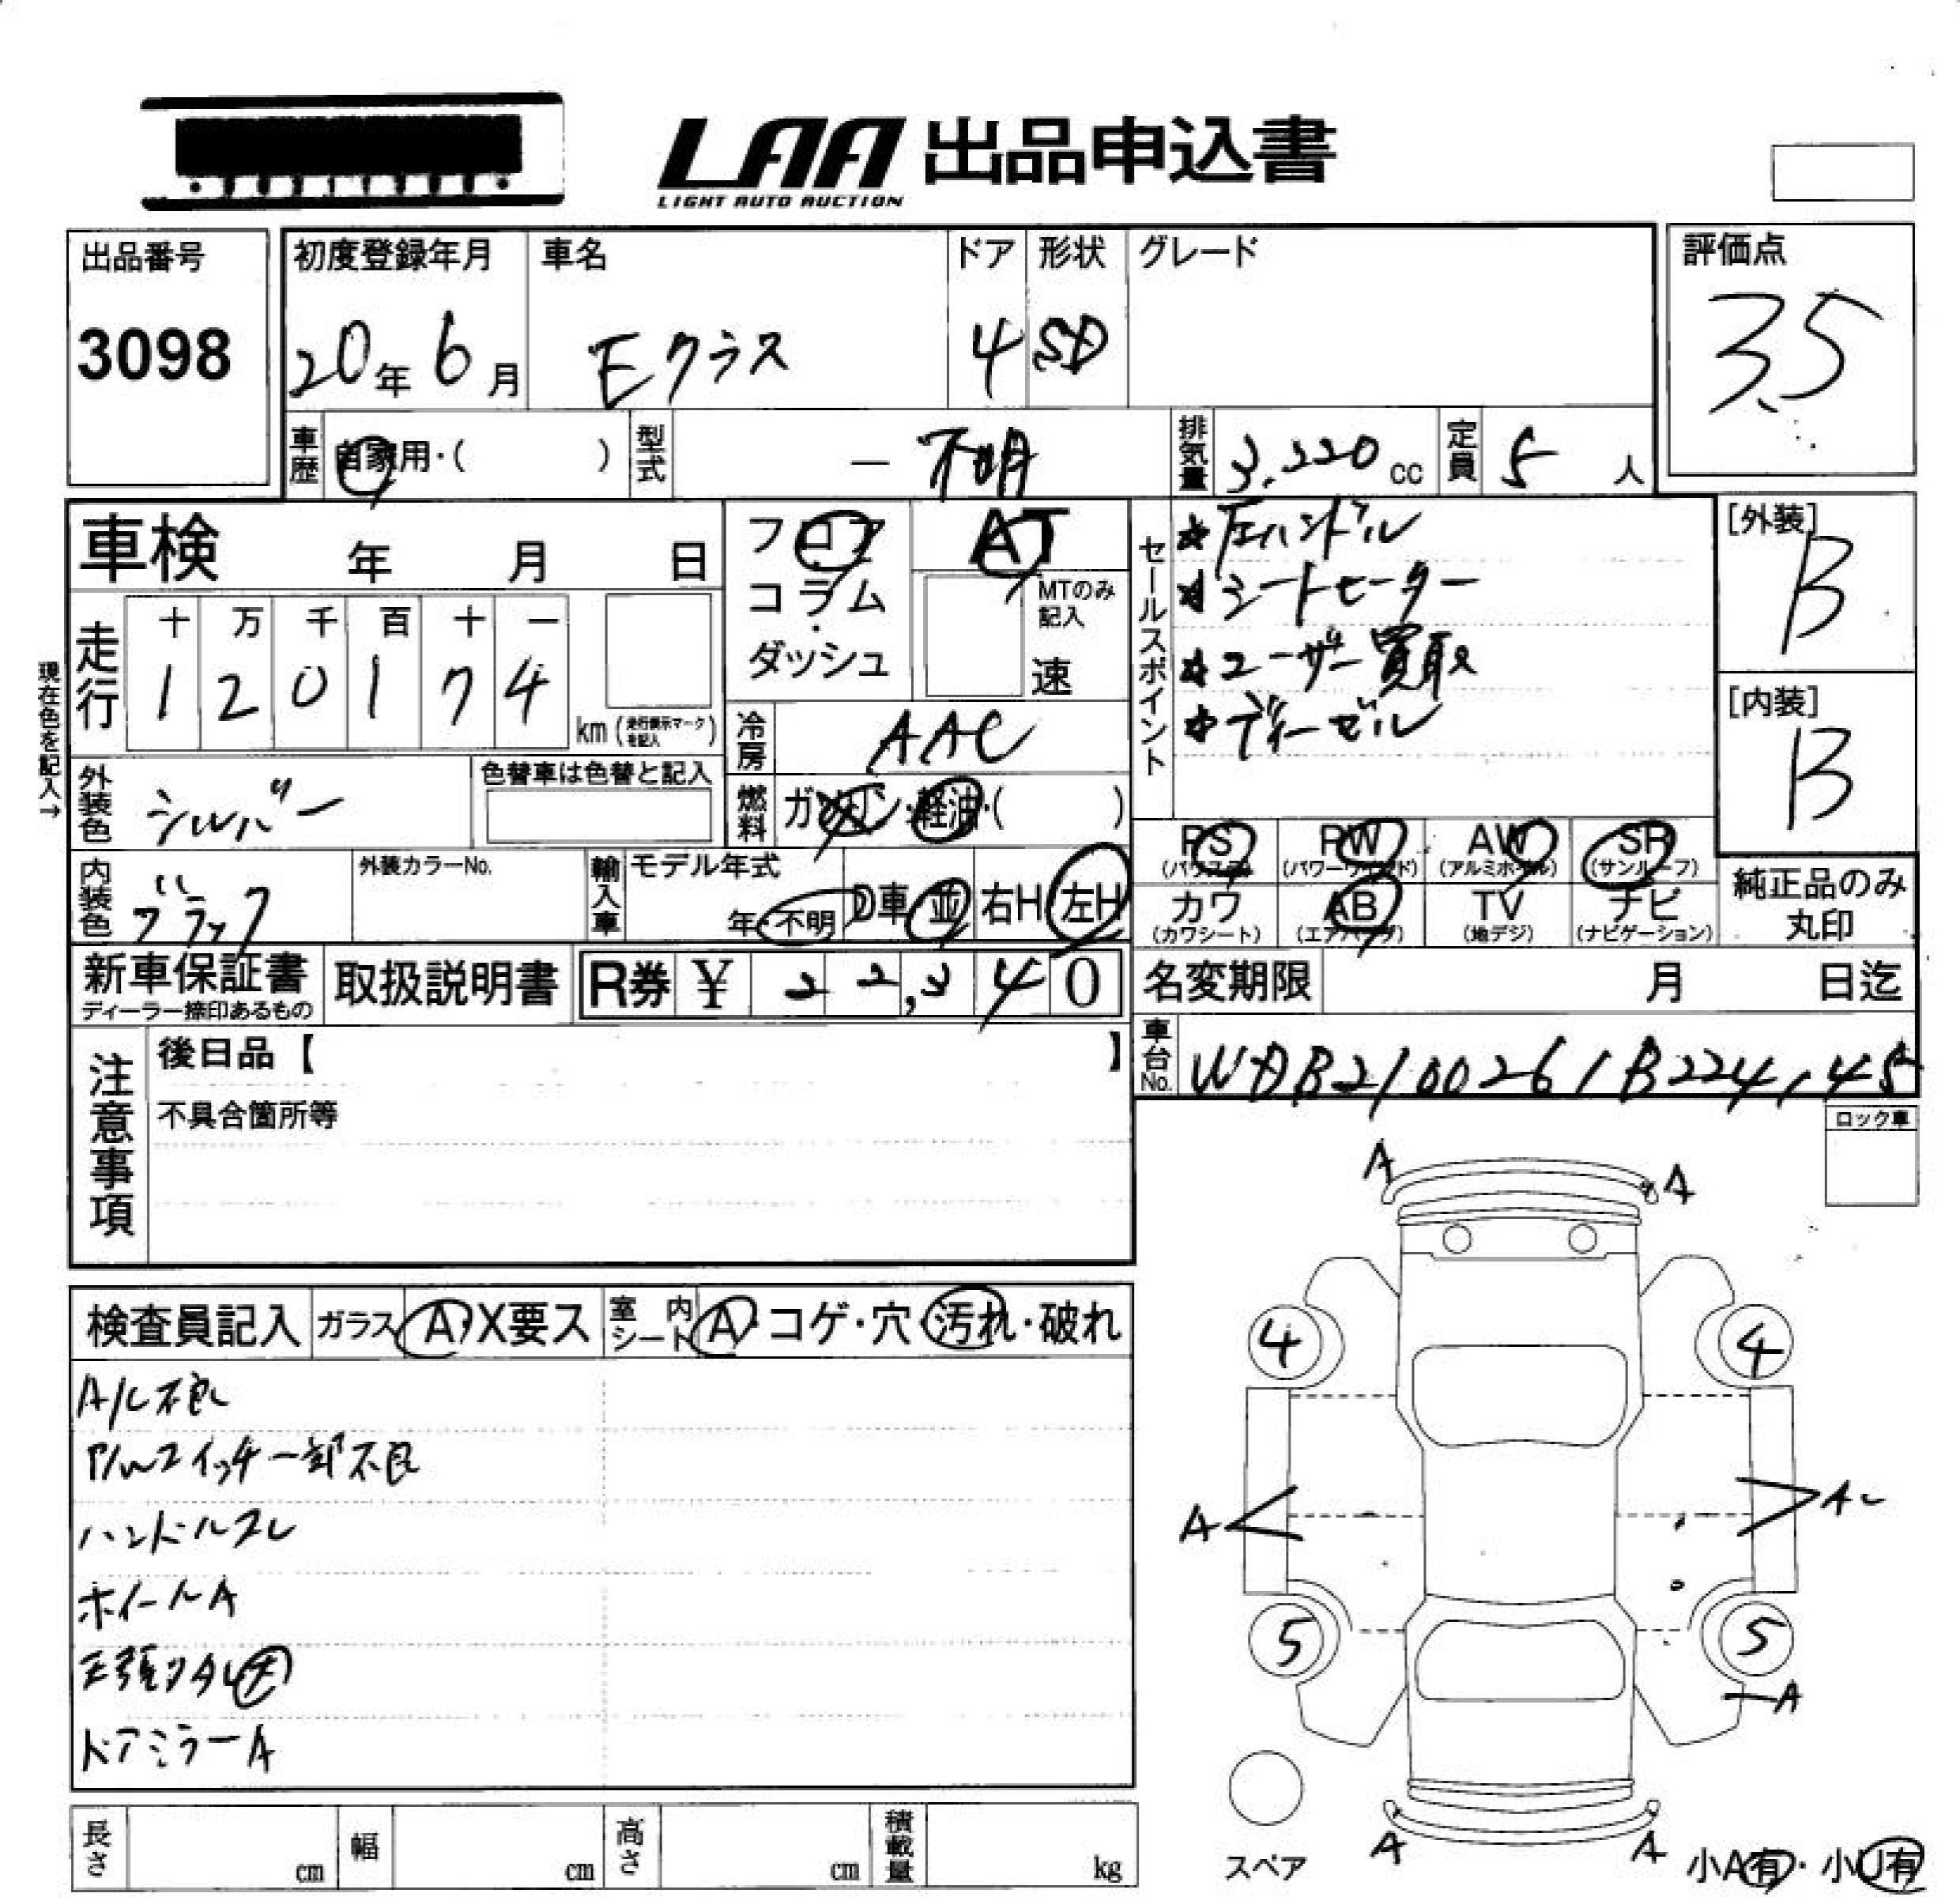 LAA 出品申込書
LIGHT AUTO AUCTION
出品番号
3098
初度登録年月
20年 6月
車名
Eクラス
ドア
4
形状
SD
グレード
評価点
3.5
車歴 自家用・( )
型式 — 不明
排気量 3.220 cc
定員 5 人
車検 年 月 日
フロア
コラム
・
ダッシュ
AT
MTのみ
記入
速
セールスポイント
☆左ハンドル
☆シートヒーター
☆ユーザー買取
☆ディーゼル
[外装]
B
[内装]
B
現在色を記入→
走行
十 万 千 百 十 一
1 2 0 1 7 4
km (走行表示マークを記入)
冷房 AAC
外装色 シルバー
色替車は色替と記入
燃料 ガソリン・軽油・( )
内装色 ブラック
外装カラーNo.
輸入車
モデル年式
年・不明
D車・並
右H・左H
PS
(パワステ)
PW
(パワーウインド)
AW
(アルミホイル)
SR
(サンルーフ)
カワ
(カワシート)
AB
(エアバッグ)
TV
(地デジ)
ナビ
(ナビゲーション)
純正品のみ
丸印
新車保証書
ディーラー捺印あるもの
取扱説明書
R券 ¥ 22,340
名変期限 月 日迄
車台No. WDB2100261B224145
注意事項
後日品【 】
不具合箇所等
ロック車
検査員記入
ガラス A・X要ス
室内シート A・コゲ・穴・汚れ・破れ
A/C不良
P/Wスイッチ一部不良
ハンドルスレ
ホイールA
ドアミラーA
A A
4 4
A A
5 5
A
A A
スペア
小A有・小U有
長さ cm
幅 cm
高さ cm
積載量 kg